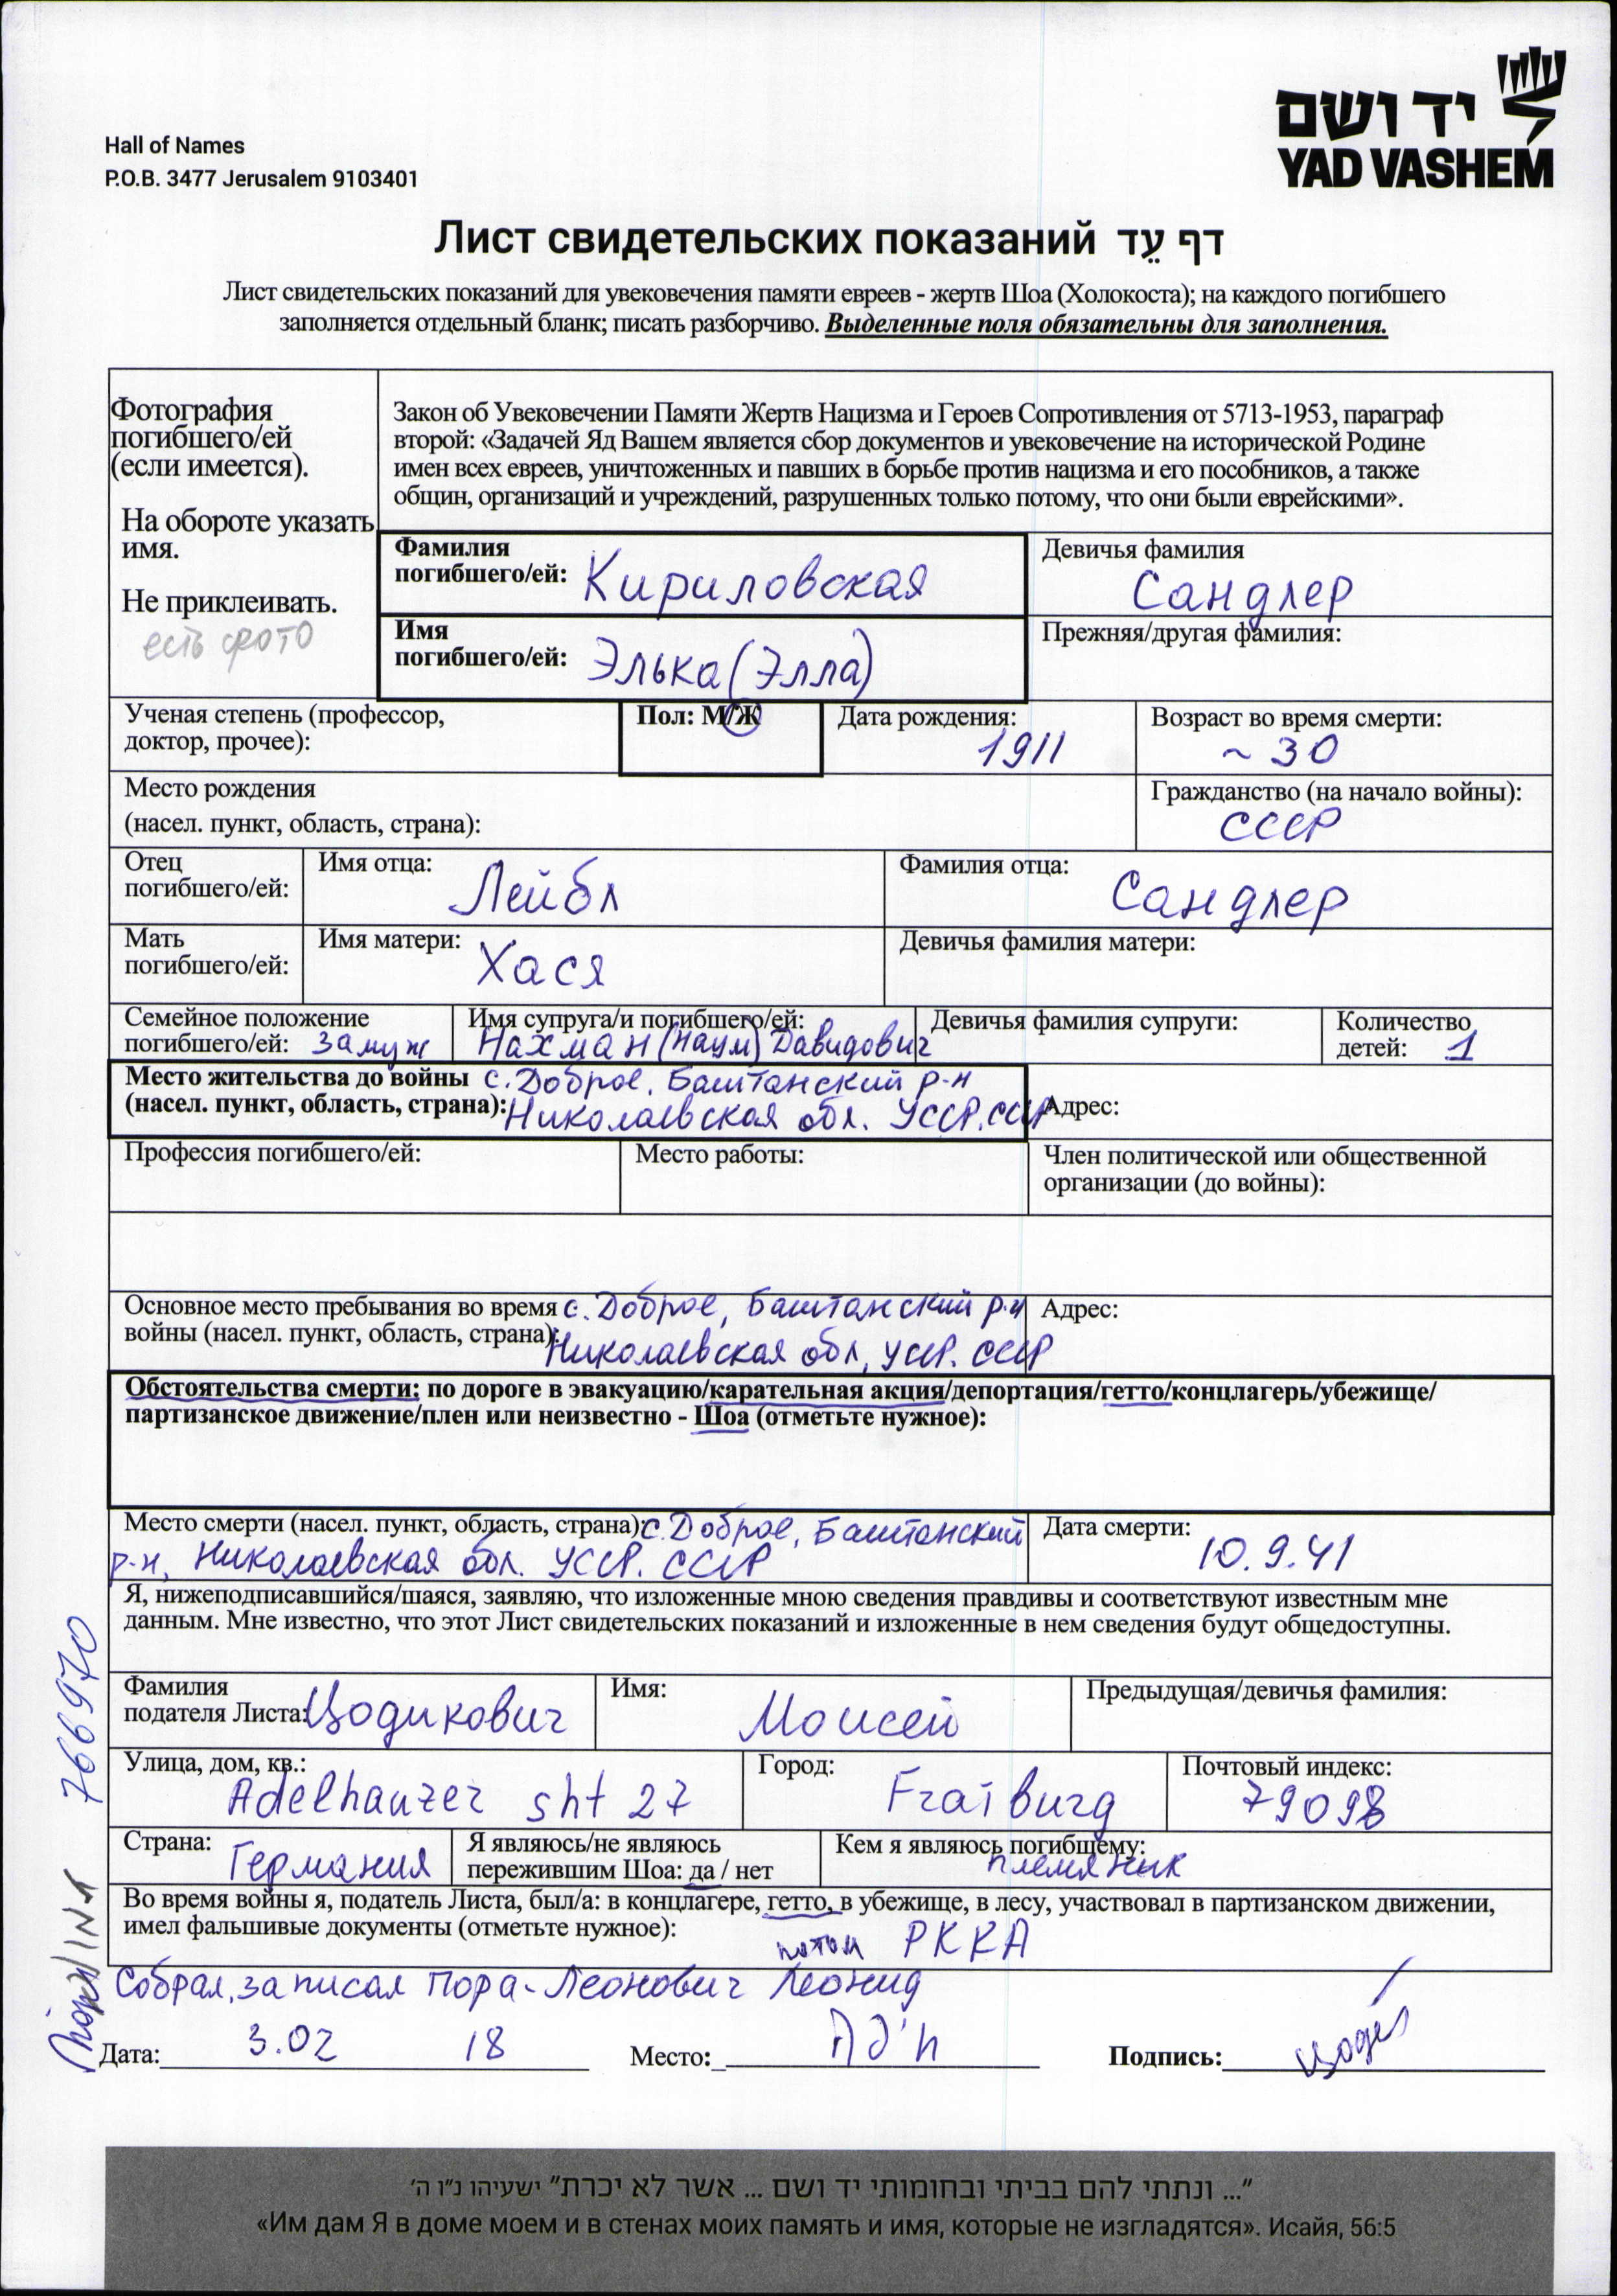 Hall of Names
P.O.B. 3477 Jerusalem 9103401
יד ושם
YAD VASHEM
Лист свидетельских показаний דף עֵד
Лист свидетельских показаний для увековечения памяти евреев - жертв Шоа (Холокоста); на каждого погибшего
заполняется отдельный бланк; писать разборчиво. Выделенные поля обязательны для заполнения.
Фотография
погибшего/ей
(если имеется).
На обороте указать
имя.
Не приклеивать.
есть фото
Закон об Увековечении Памяти Жертв Нацизма и Героев Сопротивления от 5713-1953, параграф
второй: «Задачей Яд Вашем является сбор документов и увековечение на исторической Родине
имен всех евреев, уничтоженных и павших в борьбе против нацизма и его пособников, а также
общин, организаций и учреждений, разрушенных только потому, что они были еврейскими».
Фамилия
погибшего/ей: Кириловская
Девичья фамилия
Сандлер
Имя
погибшего/ей: Элька (Элла)
Прежняя/другая фамилия:
Ученая степень (профессор,
доктор, прочее):
Пол: М/Ж
Дата рождения:
1911
Возраст во время смерти:
~ 30
Место рождения
(насел. пункт, область, страна):
Гражданство (на начало войны):
СССР
Отец
погибшего/ей:
Имя отца:
Лейбл
Фамилия отца:
Сандлер
Мать
погибшего/ей:
Имя матери:
Хася
Девичья фамилия матери:
Семейное положение
погибшего/ей: замуж
Имя супруга/и погибшего/ей:
Нахман (Наум) Давидович
Девичья фамилия супруги:
Количество
детей: 1
Место жительства до войны с. Доброе, Баштанский р-н
(насел. пункт, область, страна): Николаевская обл. УССР. СССР
Адрес:
Профессия погибшего/ей:
Место работы:
Член политической или общественной
организации (до войны):
Основное место пребывания во время с. Доброе, Баштанский р-н
войны (насел. пункт, область, страна): Николаевская обл, УССР. СССР
Адрес:
Обстоятельства смерти: по дороге в эвакуацию/карательная акция/депортация/гетто/концлагерь/убежище/
партизанское движение/плен или неизвестно - Шоа (отметьте нужное):
Место смерти (насел. пункт, область, страна): с. Доброе, Баштанский
р-н, Николаевская обл. УССР. СССР
Дата смерти:
10.9.41
Я, нижеподписавшийся/шаяся, заявляю, что изложенные мною сведения правдивы и соответствуют известным мне
данным. Мне известно, что этот Лист свидетельских показаний и изложенные в нем сведения будут общедоступны.
Фамилия
подателя Листа: Цодикович
Имя:
Моисей
Предыдущая/девичья фамилия:
Улица, дом, кв.:
Adelhauzer sht 27
Город:
Fraiburg
Почтовый индекс:
79098
Страна:
Германия
Я являюсь/не являюсь
пережившим Шоа: да / нет
Кем я являюсь погибшему:
племянник
Во время войны я, податель Листа, был/а: в концлагере, гетто, в убежище, в лесу, участвовал в партизанском движении,
имел фальшивые документы (отметьте нужное):
потом РККА
Собрал, записал Пора-Леонович Леонид
Дата: 3.02 18
Место:
Подпись: Цоди
766970
"... ונתתי להם בביתי ובחומותי יד ושם ... אשר לא יכרת" ישעיהו נ"ו ה'
«Им дам Я в доме моем и в стенах моих память и имя, которые не изгладятся». Исайя, 56:5